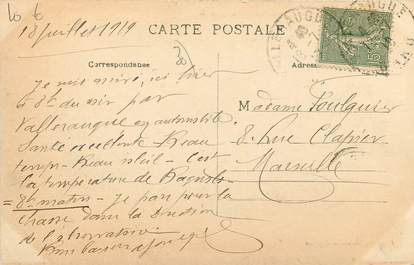 18 juillet 1919
CARTE POSTALE
Correspondance
Adresse
Je suis arrivé ici hier
à 8h du soir par
Valleraugue en automobile
Santé excellente Beau
temps - Beau soleil - C'est
la température de
8h matin - Je pars pour la
chasse dans la direction
de l'observatoire
Madame Foulquier
8 Rue Clapier
Marseille